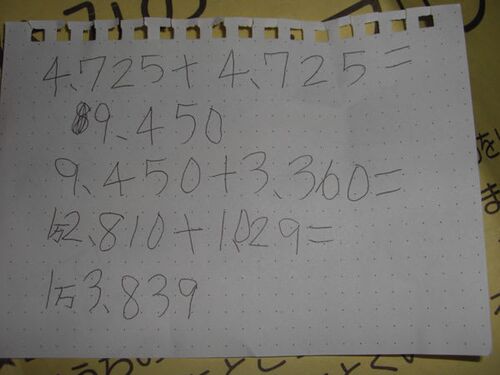 4,725+4,725=
9,450
9,450+3,360=
1万2,810+1,029=
1万3,839